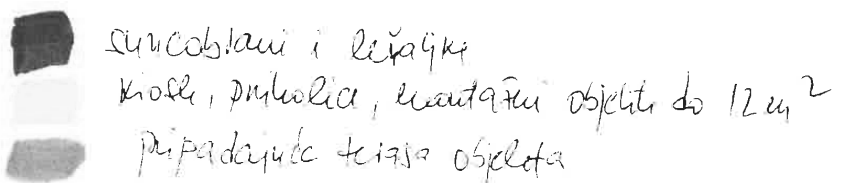 suncobrani i ležaljke
kiosk, prikolica, montažni objekti do 12 m²
pripadajuća terasa objekta